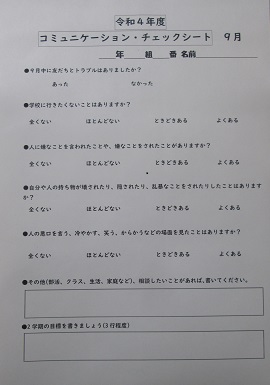 令和４年度
コミュニケーション・チェックシート　９月
年　組　番 名前
●９月中に友だちとトラブルはありましたか？
あった　なかった
●学校に行きたくないことはありますか？
全くない　ほとんどない　ときどきある　よくある
●人に嫌なことを言われたことや、嫌なことをされたことがありますか？
全くない　ほとんどない　ときどきある　よくある
●自分や人の持ち物が壊されたり、隠されたり、乱暴なことをされたりしたことはあります
か？
全くない　ほとんどない　ときどきある　よくある
●人の悪口を言う、冷やかす、笑う、からかうなどの場面を見たことはありますか？
全くない　ほとんどない　ときどきある　よくある
●その他(部活、クラス、生活、家庭など)、相談したいことがあれば、書いてください。
●２学期の目標を書きましょう(３行程度)